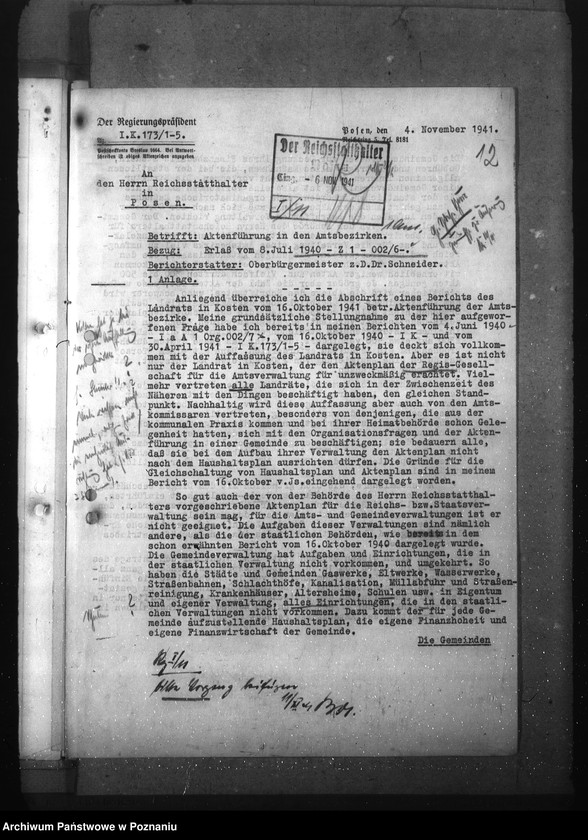 Der Regierungspräsident
I.K.173/1-5.
Posen, den 4. November 1941.
12
Der Reichsstatthalter
Eing. - 6 NOV 1941
An
den Herrn Reichsstatthalter
in
Posen.
Betrifft: Aktenführung in den Amtsbezirken.
Bezug: Erlaß vom 8.Juli 1940 - Z 1 - 002/6-.
Berichterstatter: Oberbürgermeister z.D.Dr.Schneider.
1 Anlage.
- - - - -
Anliegend überreiche ich die Abschrift eines Berichts des
Landrats in Kosten vom 16.Oktober 1941 betr.Aktenführung der Amts-
bezirke. Meine grundsätzliche Stellungnahme zu der hier aufgewor-
fenen Frage habe ich bereits in meinen Berichten vom 4.Juni 1940
- I a A 1 Org.002/7 -, vom 16.Oktober 1940 - I K - und vom
30.April 1941 - I K.173/1-5 - dargelegt, sie deckt sich vollkom-
men mit der Auffassung des Landrats in Kosten. Aber es ist nicht
nur der Landrat in Kosten, der den Aktenplan der Regis-Gesell-
schaft für die Amtsverwaltung für unzweckmäßig erachtet. Viel-
mehr vertreten alle Landräte, die sich in der Zwischenzeit des
Näheren mit den Dingen beschäftigt haben, den gleichen Stand-
punkt. Nachhaltig wird diese Auffassung aber auch von den Amts-
kommissaren vertreten, besonders von denjenigen, die aus der
kommunalen Praxis kommen und bei ihrer Heimatbehörde schon Gele-
genheit hatten, sich mit den Organisationsfragen und der Akten-
führung in einer Gemeinde zu beschäftigen; sie bedauern alle,
daß sie bei dem Aufbau ihrer Verwaltung den Aktenplan nicht
nach dem Haushaltsplan ausrichten dürfen. Die Gründe für die
Gleichschaltung von Haushaltsplan und Aktenplan sind in meinem
Bericht vom 16.Oktober v.Js.eingehend dargelegt worden.
So gut auch der von der Behörde des Herrn Reichsstatthal-
ters vorgeschriebene Aktenplan für die Reichs- bzw.Staatsver-
waltung sein mag, für die Amts- und Gemeindeverwaltungen ist er
nicht geeignet. Die Aufgaben dieser Verwaltungen sind nämlich
andere, als die der staatlichen Behörden, wie bereits in dem
schon erwähnten Bericht vom 16.Oktober 1940 dargelegt wurde.
Die Gemeindeverwaltung hat Aufgaben und Einrichtungen, die in
der staatlichen Verwaltung nicht vorkommen, und umgekehrt. So
haben die Städte und Gemeinden Gaswerke, Eltwerke, Wasserwerke,
Straßenbahnen, Schlachthöfe, Kanalisation, Müllabfuhr und Straßen-
reinigung, Krankenhäuser, Altersheime, Schulen usw. in Eigentum
und eigener Verwaltung, alles Einrichtungen, die in den staatli-
chen Verwaltungen nicht vorkommen. Dazu kommt der für jede Ge-
meinde aufzustellende Haushaltsplan, die eigene Finanzhoheit und
eigene Finanzwirtschaft der Gemeinde.
Die Gemeinden
Archiwum Państwowe w Poznaniu